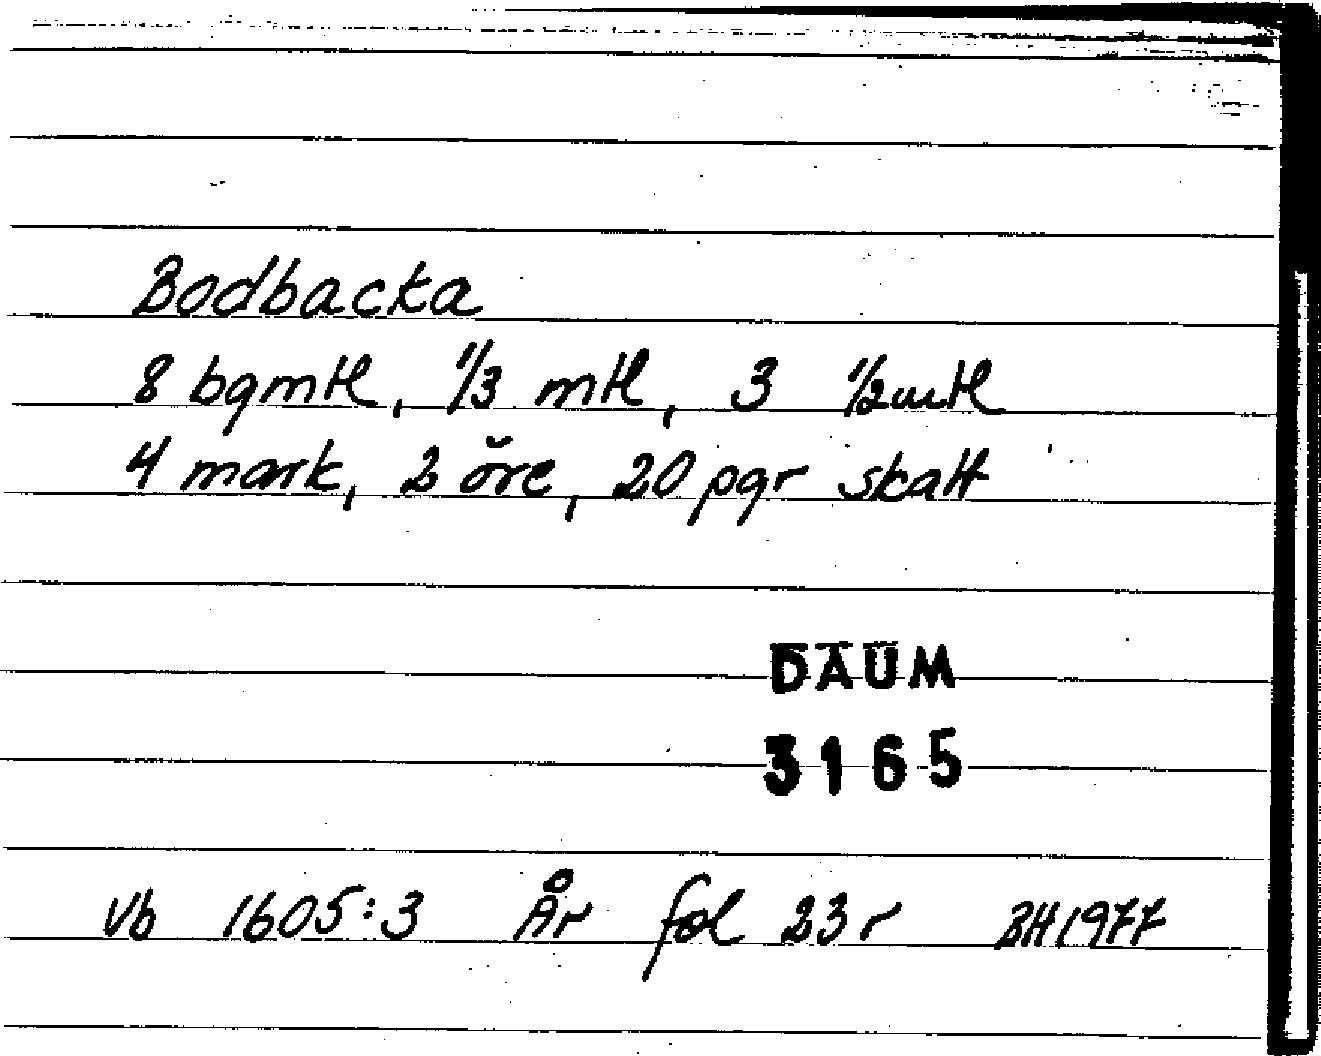 Bodbacka
8 bgmtl, 1/3 mtl, 3 1/2 mtl
4 mark, 2 öre, 20 pgr skatt
DAUM
3165
Vb 1605:3 År fol 23 r BH 1977